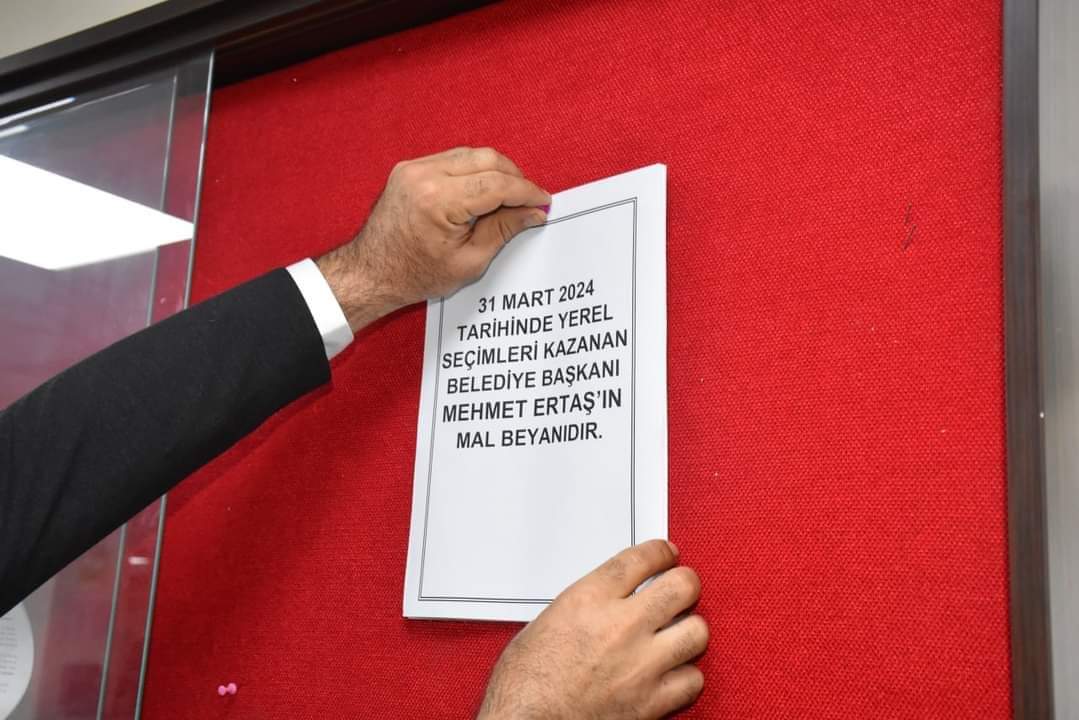 31 MART 2024
TARİHİNDE YEREL
SEÇİMLERİ KAZANAN
BELEDİYE BAŞKANI
MEHMET ERTAŞ’IN
MAL BEYANIDIR.